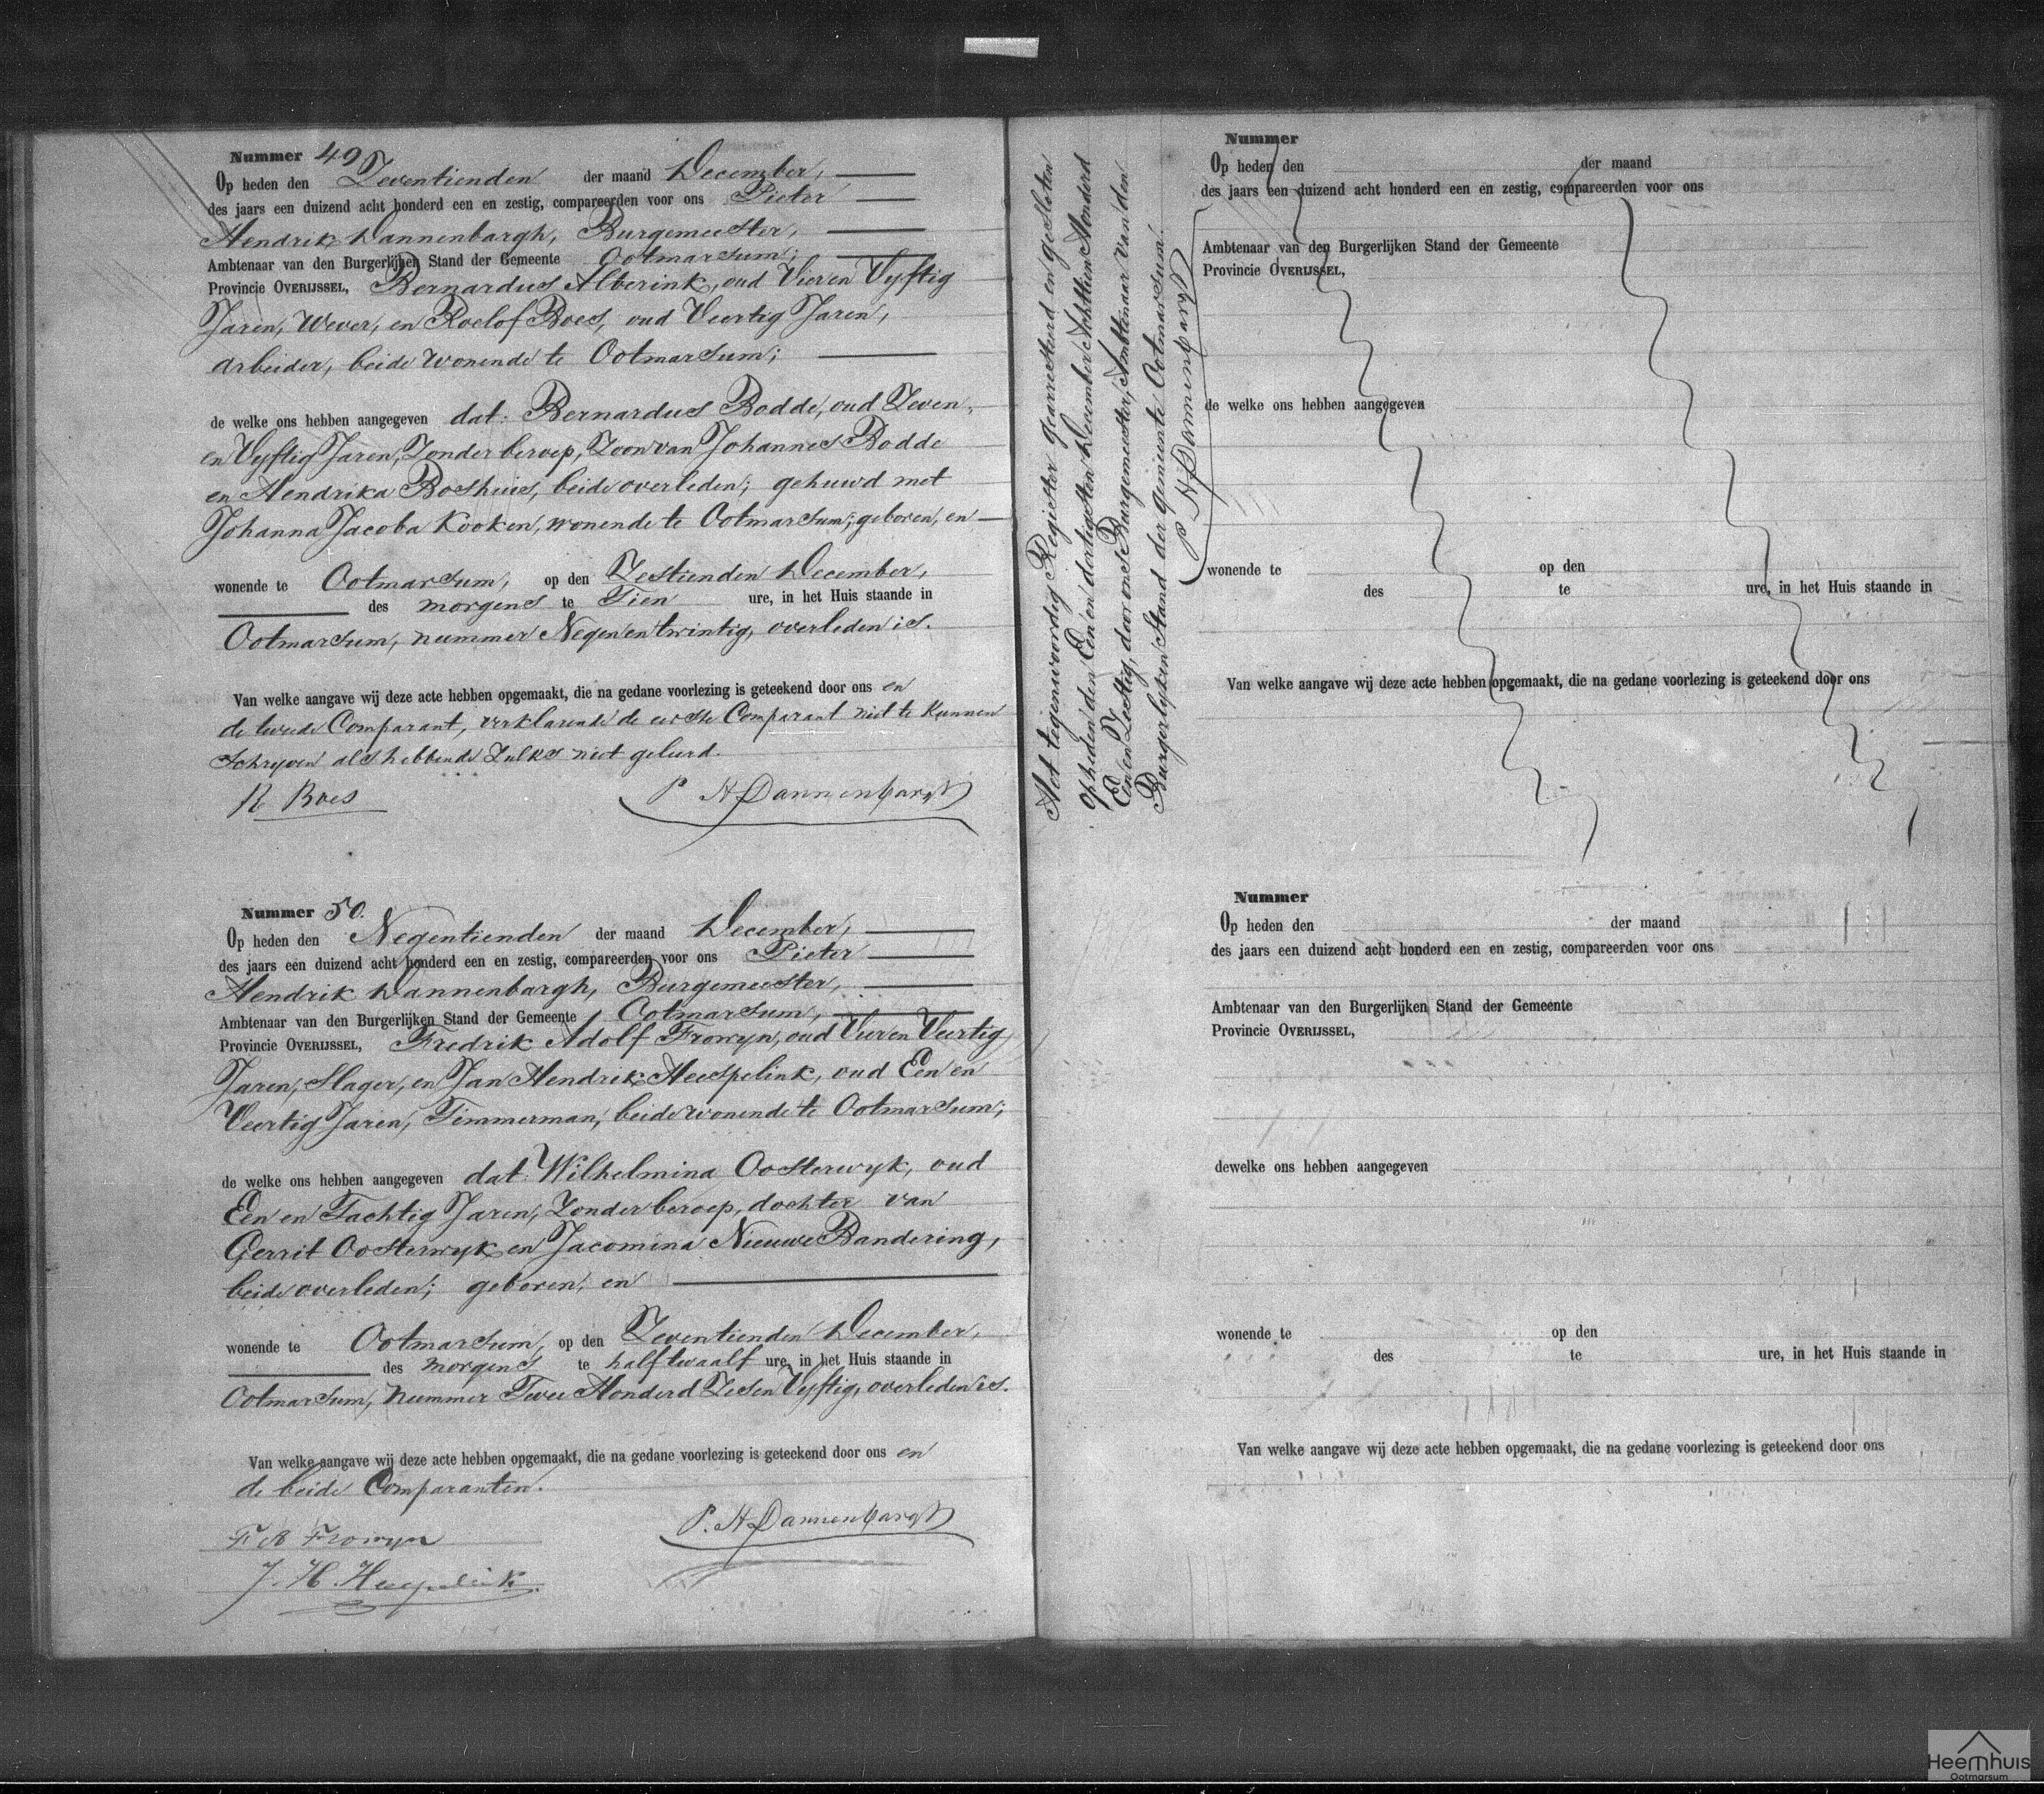 Nummer 49
Op heden den Zeventienden der maand December,
des jaars een duizend acht honderd een en zestig, compareerden voor ons Pieter
Hendrik Dannenbargh, Burgemeester,
Ambtenaar van den Burgerlijken Stand der Gemeente Ootmarsum;
Provincie OVERIJSSEL, Bernardus Alberink, oud Vier en Vyftig
Jaren, Wever, en Roelof Boes, oud Veertig Jaren,
arbeider, beide wonende te Ootmarsum;
de welke ons hebben aangegeven dat Bernardus Bodde, oud Zeven
en Vyftig Jaren, Zonder beroep, Zoon van Johannes Bodde
en Hendrika Boshuis, beide overleden; gehuwd met
Johanna Jacoba Kooken, wonende te Ootmarsum; geboren, en
wonende te Ootmarsum, op den Zestienden December,
des morgens te Tien ure, in het Huis staande in
Ootmarsum, nummer Negen en twintig, overleden is.
Van welke aangave wij deze acte hebben opgemaakt, die na gedane voorlezing is geteekend door ons en
de tweede Comparant, verklarende de eerste Comparant niet te Kunnen
Schryven als hebbende Zulks niet geleerd.
R Boes P H Dannenbargh
Nummer 50.
Op heden den Negentienden der maand December,
des jaars een duizend acht honderd een en zestig, compareerden voor ons Pieter
Hendrik Dannenbargh, Burgemeester,
Ambtenaar van den Burgerlijken Stand der Gemeente Ootmarsum,
Provincie OVERIJSSEL, Fredrik Adolf Frowyn, oud Vier en Veertig
Jaren, Slager, en Jan Hendrik Heespelink, oud Een en
Veertig Jaren, Timmerman, beide wonende te Ootmarsum;
de welke ons hebben aangegeven dat Wilhelmina Oosterwyk, oud
Een en Tachtig Jaren, Zonder beroep, dochter van
Gerrit Oosterwyk en Jacomina Nieuwe Bandering,
beide overleden; geboren, en
wonende te Ootmarsum, op den Zeventienden December,
des morgens te half twaalf ure, in het Huis staande in
Ootmarsum, nummer Twee Honderd Zes en Vyftig, overleden is.
Van welke aangave wij deze acte hebben opgemaakt, die na gedane voorlezing is geteekend door ons en
de beide Comparanten.
F A Frowyn P. H Dannenbargh
J. H. Heespelink
Het tegenwoordig Register gearresteerd en gesloten
op heden den Een en dertigsten December Achttien Honderd
Een en Zestig, door ons Burgemeester, Ambtenaar van den
Burgerlyken Stand der gemeente Ootmarsum.
P H Dannenbargh
Nummer
Op heden den der maand
des jaars een duizend acht honderd een en zestig, compareerden voor ons
Ambtenaar van den Burgerlijken Stand der Gemeente
Provincie OVERIJSSEL,
de welke ons hebben aangegeven
wonende te op den
des te ure, in het Huis staande in
Van welke aangave wij deze acte hebben opgemaakt, die na gedane voorlezing is geteekend door ons
Nummer
Op heden den der maand
des jaars een duizend acht honderd een en zestig, compareerden voor ons
Ambtenaar van den Burgerlijken Stand der Gemeente
Provincie OVERIJSSEL,
dewelke ons hebben aangegeven
wonende te op den
des te ure, in het Huis staande in
Van welke aangave wij deze acte hebben opgemaakt, die na gedane voorlezing is geteekend door ons
Heemhuis
Ootmarsum